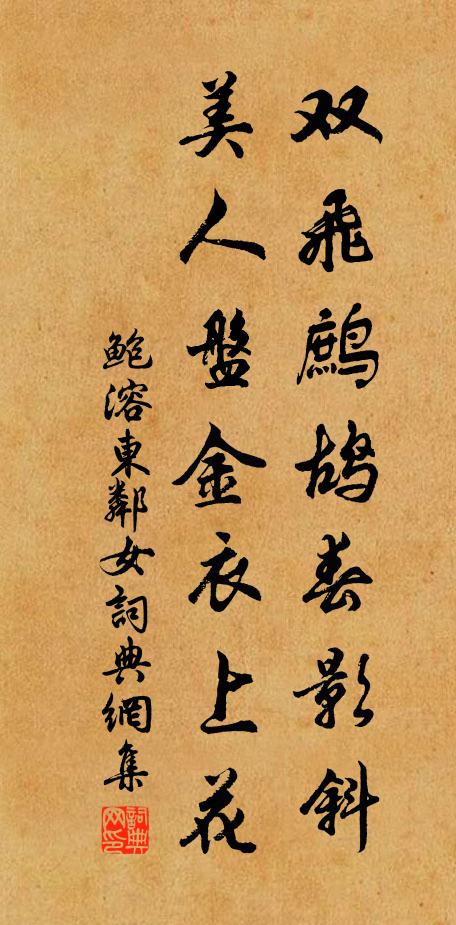 双飛鷓鴣春影斜
美人盤金衣上花
鮑溶東鄰女詞典網集
詞典网印